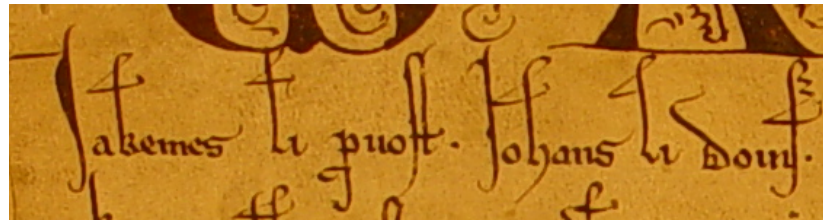 Jakemes li puost. Johans li doinſ.